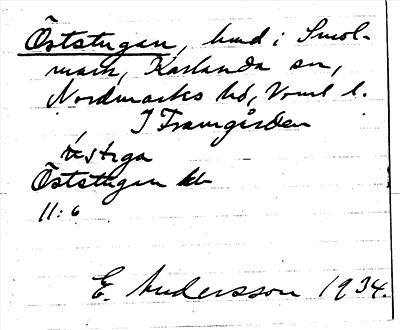 Öststugan, hmd i Smol-
mark, Karlanda sn,
Nordmarks hd, Vrml l.
I Framgården
Öststugan
11:6
E. Andersson 1934.